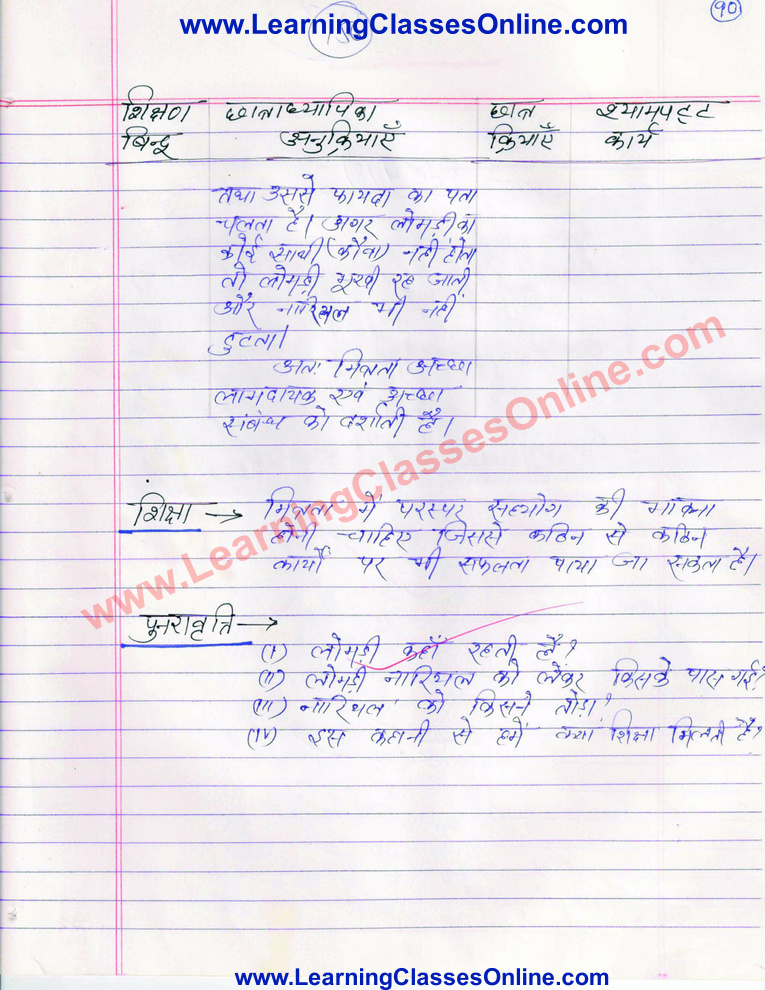 www.LearningClassesOnline.com
90
शिक्षण छात्राध्यापिका छात्र श्यामपट्ट
बिन्दू अनुक्रियाएँ क्रियाएँ कार्य
तथा उससे फायदा का पता
चलता है। अगर लोमड़ी का
कोई साथी (कौवा) नहीं होता
तो लोमड़ी भूखी रह जाती
और नारियल भी नहीं
टुटता।
अतः मित्रता अच्छा
लाभदायक एवं अच्छा
संबंध को दर्शाती है।
शिक्षा → मित्रता में परस्पर सहयोग की भावना
होनी चाहिए जिससे कठिन से कठिन
कार्यों पर भी सफलता पाया जा सकता है।
पुनरावृति →
(i) लोमड़ी कहाँ रहती है?
(ii) लोमड़ी नारियल को लेकर किसके पास गई?
(iii) नारियल को किसने तोड़ा?
(iv) इस कहानी से हमें क्या शिक्षा मिलती है?
www.LearningClassesOnline.com
www.LearningClassesOnline.com